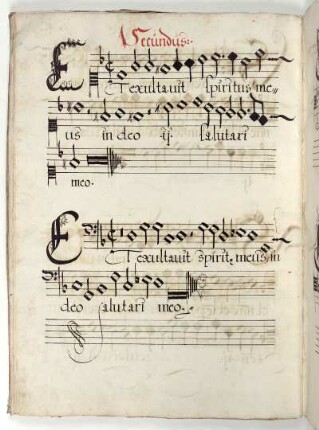 Secundus:
Et exultavit spiritus me=
us in deo ij. salutari
meo.
Et exultavit spirit9 meus in
deo salutari meo.